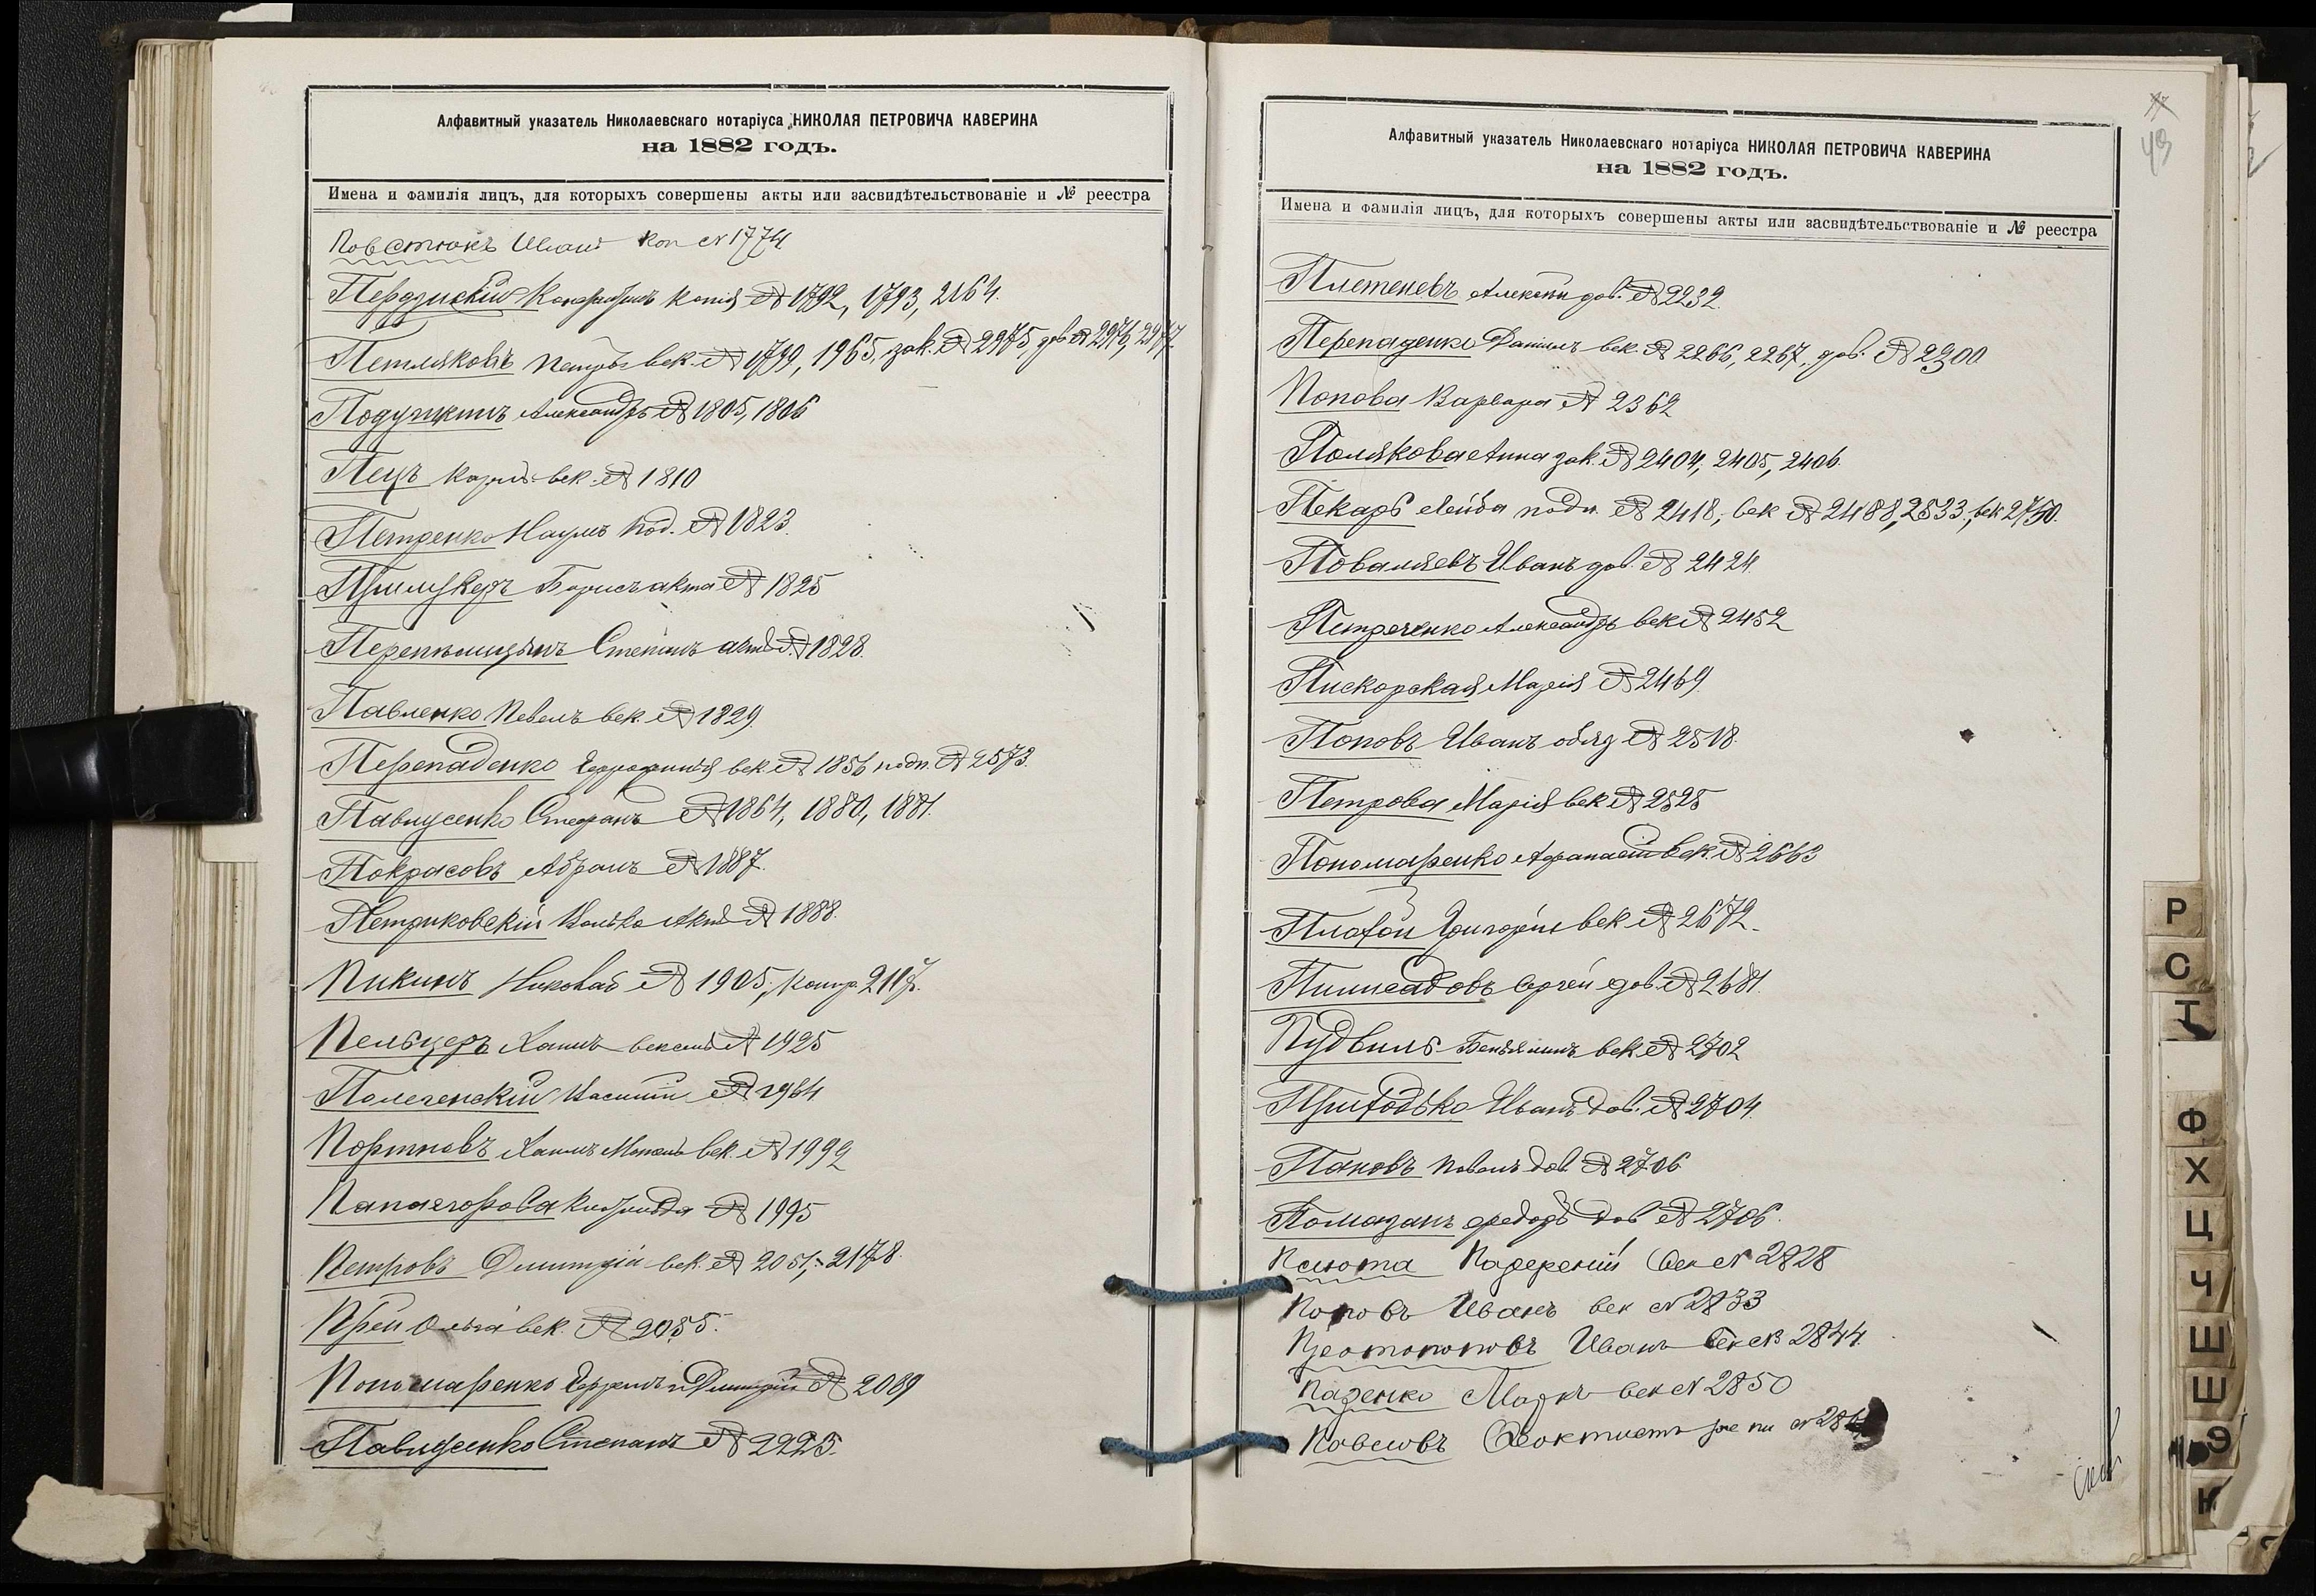 Алфавитный указатель Николаевскаго нотаріуса НИКОЛАЯ ПЕТРОВИЧА КАВЕРИНА
на 1882 годъ.
Имена и фамилія лицъ, для которыхъ совершены акты или засвидѣтельствованіе и № реестра
Повстюкъ Иванъ коп № 1774
копія № 1792, 1793, 2164.
Петляковъ Петръ век. № 1799, 1965, зак. № 2975, дов № 2976, 2977
Подушкинъ Александръ № 1805, 1806
Пецъ Карлъ век. № 1810
Петренко Наумъ под. № 1823.
Борисъ акта № 1825
Степанъ актъ № 1828.
Павленко Павелъ век. № 1829.
Перепаденко век. № 1856 подп. № 2573.
Павлусенко Стефанъ № 1864, 1880, 1881.
Покрасовъ Абрамъ № 1887.
Петриковскій Волько Актъ № 1888.
Пикинъ Николай № 1905, контр. 2117.
Пельцеръ Хаимъ вексель № 1925
Василій № 1964
Портновъ Хаимъ век. № 1992
Папаегорова № 1995
Петровъ Дмитрій век. № 2051, 2178.
Прей Ольга век. № 2055.
Пономаренко и Дмитрій № 2089
Павлусенко Степанъ № 2225.
Алфавитный указатель Николаевскаго нотаріуса НИКОЛАЯ ПЕТРОВИЧА КАВЕРИНА
на 1882 годъ.
Имена и фамилія лицъ, для которыхъ совершены акты или засвидѣтельствованіе и № реестра
43
Плетеневъ Алексѣй дов. № 2232.
Перепаденко Даніилъ век. № 2266, 2267, дов. № 2300
Попова Варвара № 2362
Полякова Анна зак. № 2404, 2405, 2406.
Пекарь Лейба подп. № 2418, век № 2488, 2533, век 2750.
Поваляевъ Иванъ дов. № 2424.
Петреченко Александръ век № 2452
Пискорская Марія № 2469.
Поповъ Иванъ обяз № 2518.
Петрова Марія век № 2525
Пономаренко Афанасій век. № 2663
Плахой Григорій век № 2672.
Сергѣй дов. № 2681.
Пудвиль Беньяминъ век № 2702
Приходько Иванъ дов. № 2704.
Пановъ Павелъ дов. № 2706
Помазанъ Федоръ дов № 2706.
Псіота век № 2828
Поповъ Иванъ век № 2833
Протопоповъ Иванъ век № 2844.
Паденко Маркъ век № 2850
Феоктистъ
Р
С
Т
Ф
Х
Ц
Ч
Ш
Ш
Э